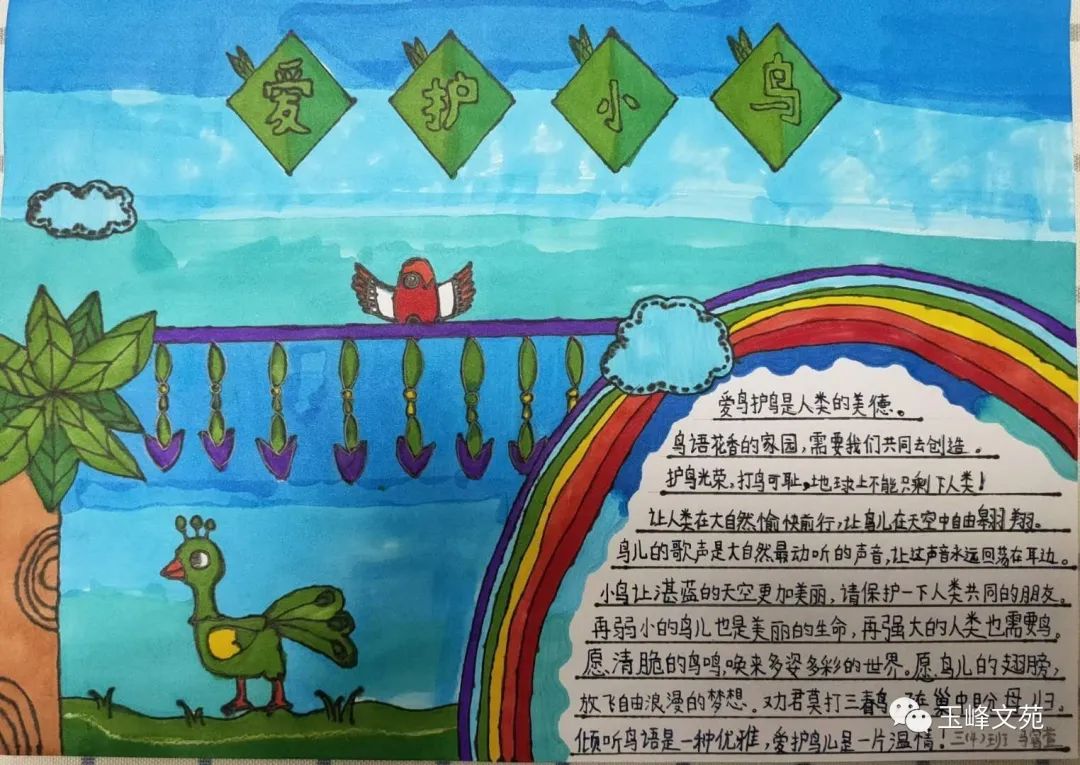 爱护小鸟
爱鸟护鸟是人类的美德。
鸟语花香的家园，需要我们共同去创造。
护鸟光荣，打鸟可耻，地球上不能只剩下人类！
让人类在大自然愉快前行，让鸟儿在天空中自由翱翔。
鸟儿的歌声是大自然最动听的声音，让这声音永远回荡在耳边。
小鸟让湛蓝的天空更加美丽，请保护一下人类共同的朋友。
再弱小的鸟儿也是美丽的生命，再强大的人类也需要鸟。
愿清脆的鸟鸣，唤来多姿多彩的世界。愿鸟儿的翅膀，
放飞自由浪漫的梦想。劝君莫打三春鸟，在巢中盼母归。
倾听鸟语是一种优雅，爱护鸟儿是一片温情！
三(4)班
玉峰文苑